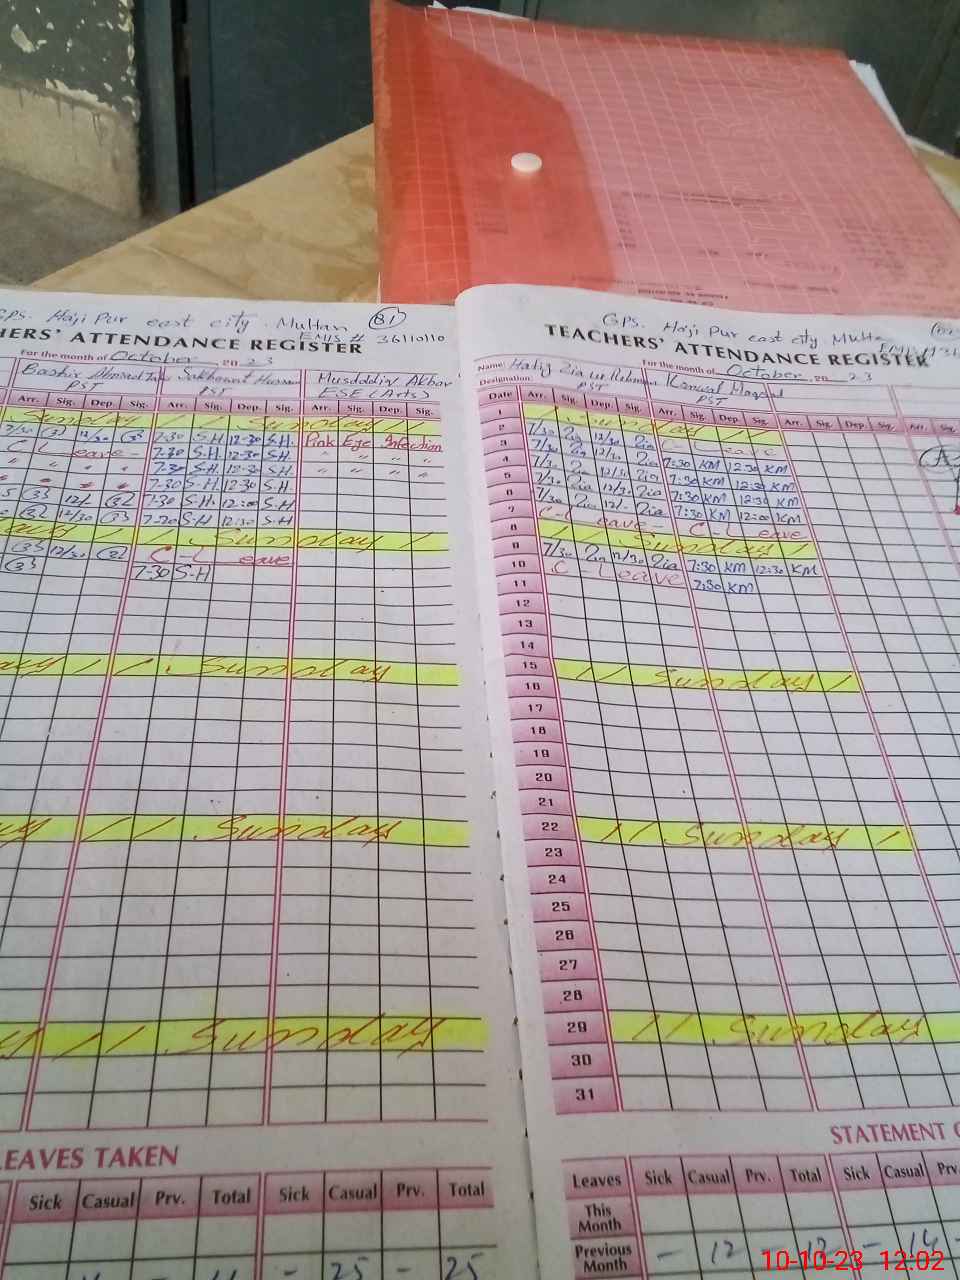 GPS. Haji Pur east city. Multan
EMIS # 36110110
HERS' ATTENDANCE REGISTER
For the month of October 20 23
Bashir Ahmad Sakhawat Akbar
PST PST ESE (Arts)
Arr. Sig. Dep. Sig. Arr. Sig. Dep. Sig. Arr. Sig. Dep. Sig.
Sunday
7/30 12/30 7-30 S.H 12-30 S.H. Pink Eye Infection
C Leave - 7-30 S.H 12-30 S.H. " " " "
" " " " 7-30 S.H 12-30 S.H. " " " "
7-30 S.H 12-30 S.H.
12/- 7-30 S.H 12:00 S.H
12/30 7-30 S.H 12-30 S.H
Sunday
12/30 C-Leave
7-30 S-H
Sunday
Sunday
Sunday
LEAVES TAKEN
Sick Casual Prv. Total Sick Casual Prv. Total
- 25 - 25
GPS. Haji Pur east city Multa
TEACHERS' ATTENDANCE REGISTER
Name: Hafiz Zia ur Rehman Kanwal
For the month of October 20 23
Designation: PST PST
Date Arr. Sig. Dep. Sig. Arr. Sig. Dep. Sig. Arr. Sig. Dep. Sig. Arr. Sig.
1 Sunday
2 7/30 Zia 12/30 Zia C-Leave
3 7/30 Zia 12/30 Zia 7:30 KM 12:30 KM
4 7/30 Zia 12/30 Zia 7:30 KM 12:30 KM
5 7/30 Zia 12/30 Zia 7:30 KM 12:30 KM
6 7/30 Zia 12/- Zia 7:30 KM 12:00 KM
7 C-Leave- C-Leave
8 Sunday
9 7/30 Zia 12/30 Zia 7:30 KM 12:30 KM
10 C-Leave 7:30 KM
11
12
13
14
15 Sunday
16
17
18
19
20
21
22 Sunday
23
24
25
26
27
28
29 Sunday
30
31
STATEMENT
Leaves Sick Casual Prv. Total Sick Casual Prv.
This Month
Previous Month - 12 - 12 - 14 -
10-10-23 12:02